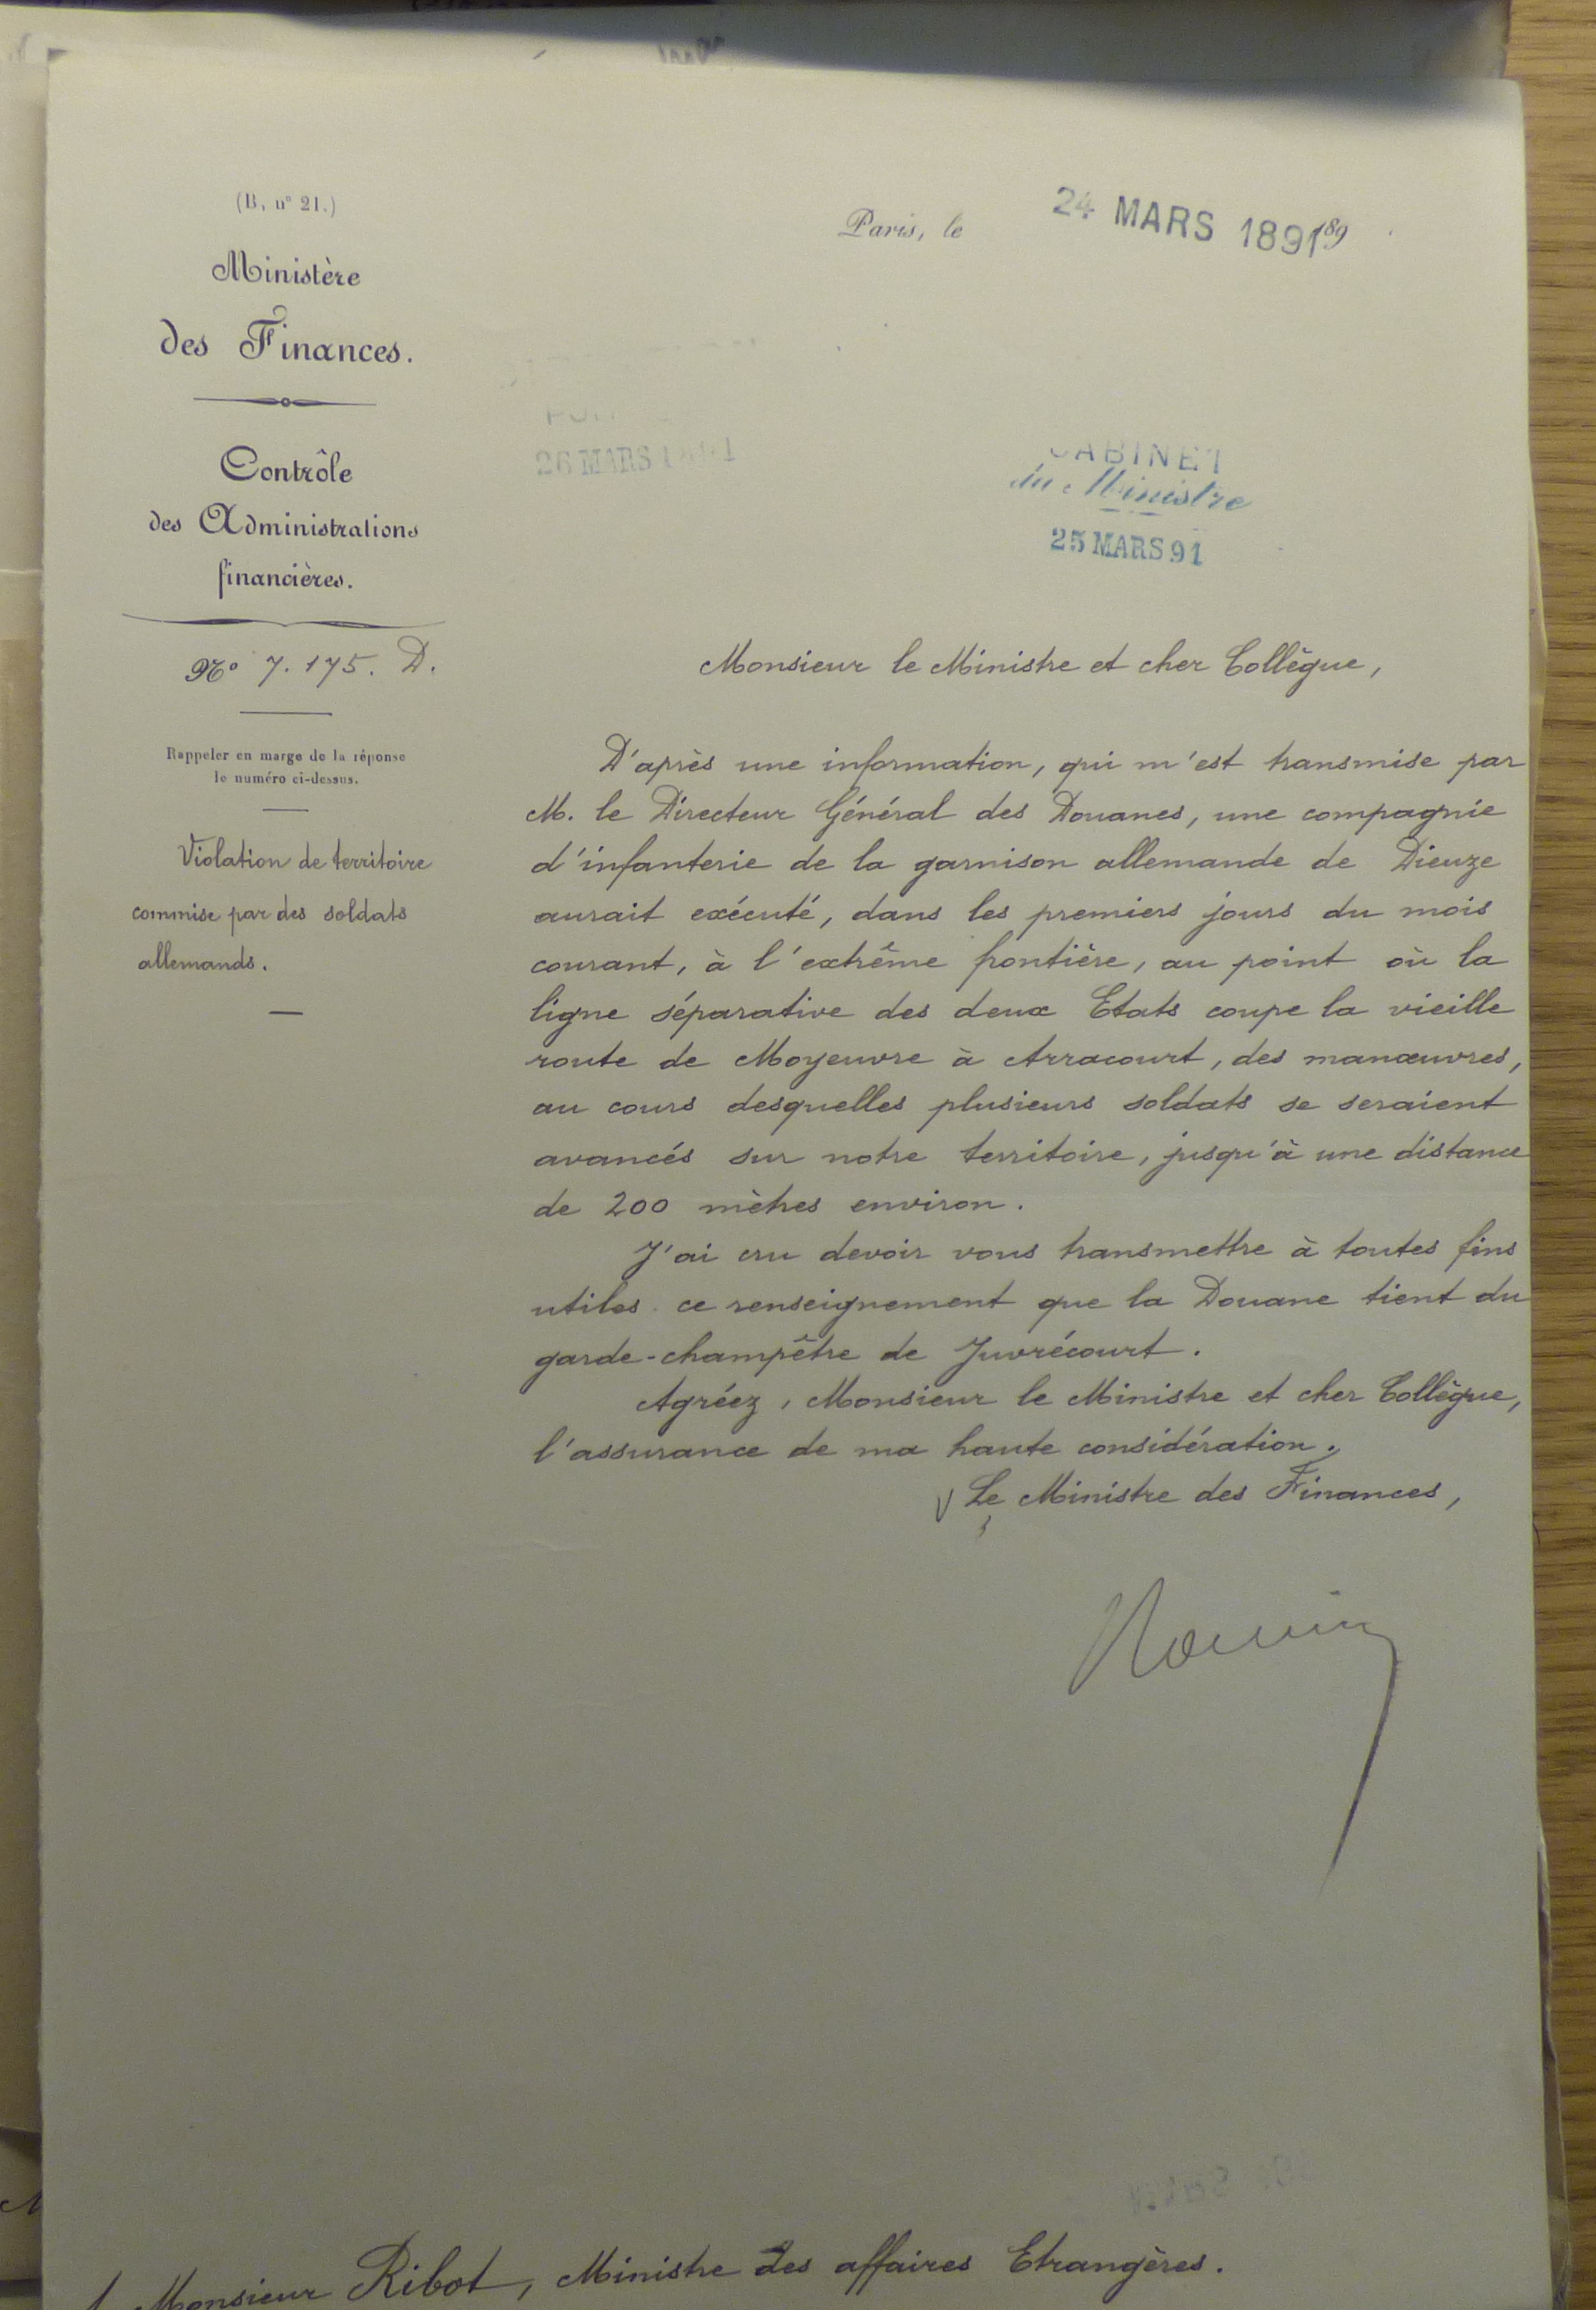 (B, nº 21.)
Paris, le 24 MARS 1891 189
Ministère
des Finances.
Contrôle
des Administrations
financières.
26 MARS 1891
CABINET
du Ministre
25 MARS 91
Nº 7.175. D.
Rappeler en marge de la réponse
le numéro ci-dessus.
Violation de territoire
commise par des soldats
allemands.
Monsieur le Ministre et cher Collègue,
D'après une information, qui m'est transmise par
M. le Directeur Général des Douanes, une compagnie
d'infanterie de la garnison allemande de Dieuze
aurait exécuté, dans les premiers jours du mois
courant, à l'extrême frontière, au point où la
ligne séparative des deux Etats coupe la vieille
route de Moyeuvre à Arracourt, des manœuvres,
au cours desquelles plusieurs soldats se seraient
avancés sur notre territoire, jusqu'à une distance
de 200 mètres environ.
J'ai cru devoir vous transmettre à toutes fins
utiles ce renseignement que la Douane tient du
garde-champêtre de Juvrécourt.
Agréez, Monsieur le Ministre et cher Collègue,
l'assurance de ma haute considération.
Le Ministre des Finances,
Rouvier
A Monsieur Ribot, Ministre des affaires Etrangères.